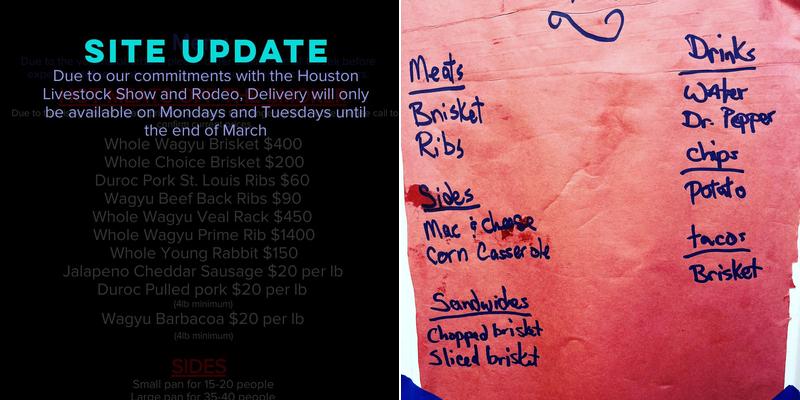 SITE UPDATE
Due to our commitments with the Houston
Livestock Show and Rodeo, Delivery will only
be available on Mondays and Tuesdays until
the end of March
Whole Wagyu Brisket $400
Whole Choice Brisket $200
Duroc Pork St. Louis Ribs $60
Wagyu Beef Back Ribs $90
Whole Wagyu Veal Rack $450
Whole Wagyu Prime Rib $1400
Whole Young Rabbit $150
Jalapeno Cheddar Sausage $20 per lb
Duroc Pulled pork $20 per lb
(4lb minimum)
Wagyu Barbacoa $20 per lb
(4lb minimum)
SIDES
Small pan for 15-20 people
Large pan for 35-40 people
Meats
Brisket
Ribs
Sides
Mac & cheese
Corn Casserole
Sandwiches
Chopped brisket
Sliced brisket
Drinks
Water
Dr. Pepper
Chips
Potato
tacos
Brisket